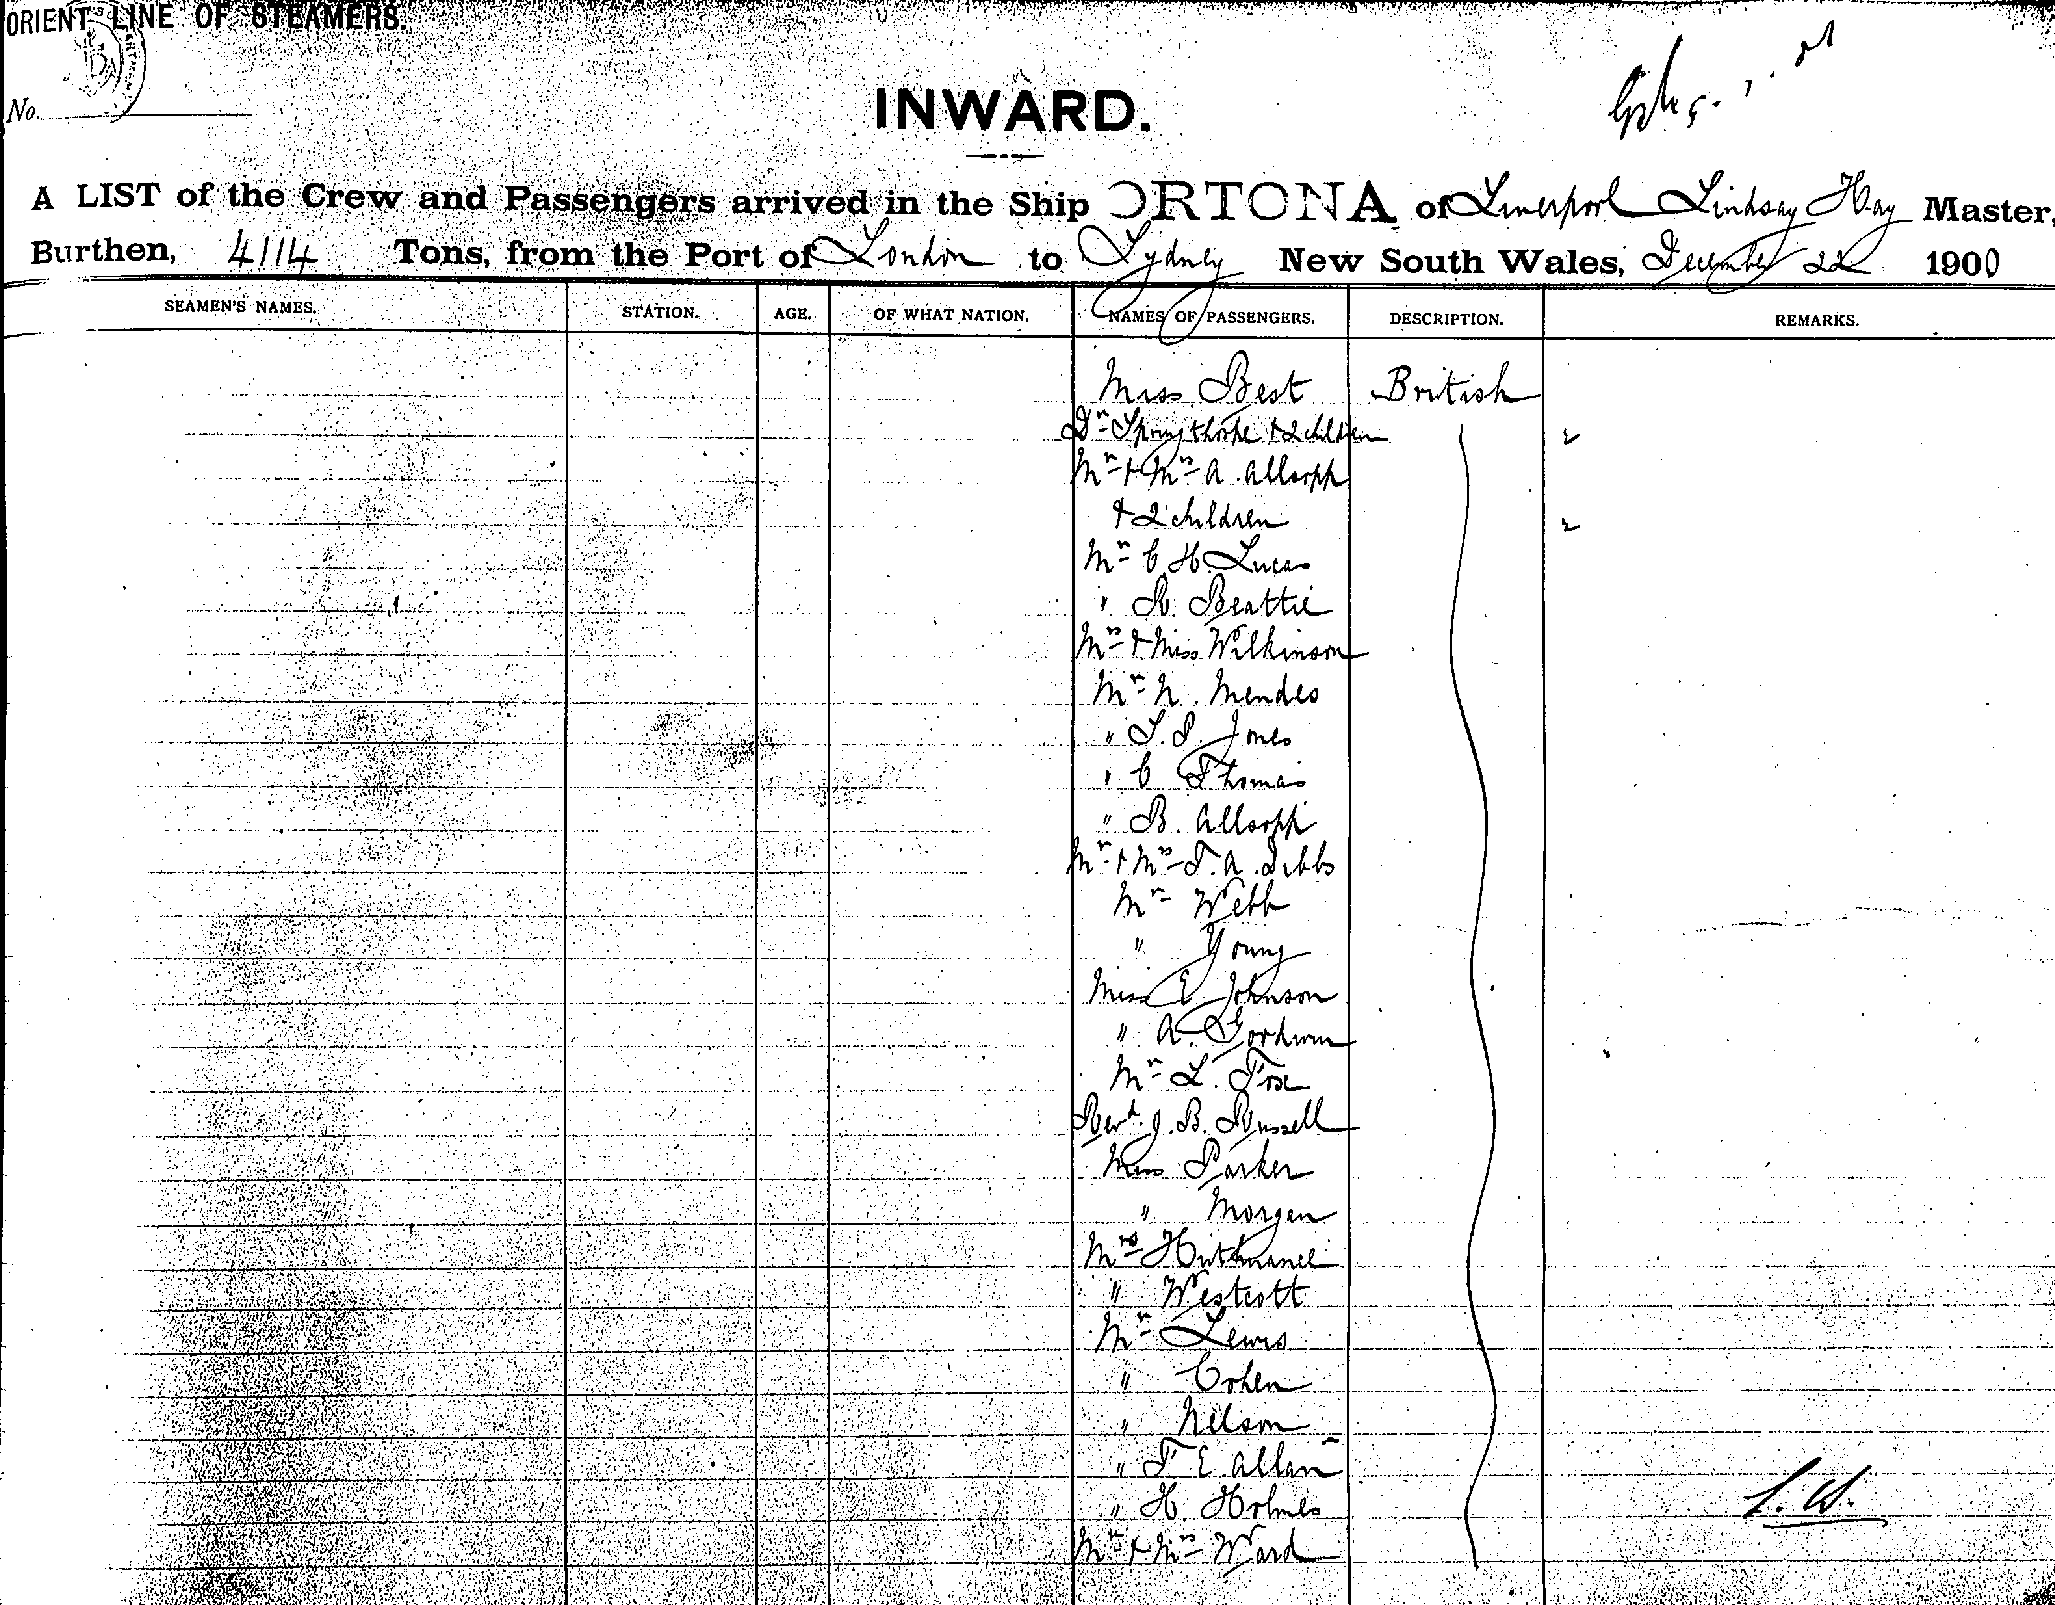 ORIENT LINE OF STEAMERS.
No.
INWARD.
A LIST of the Crew and Passengers arrived in the Ship ORTONA of Liverpool Lindsay Hay Master,
Burthen, 4114 Tons, from the Port of London to Sydney New South Wales, December 22 1900
SEAMEN'S NAMES. STATION. AGE. OF WHAT NATION. NAMES OF PASSENGERS. DESCRIPTION. REMARKS.
Miss Best British
Dr Springthorpe & 2 children 2
Mr & Mrs A. Allsopp
& 2 children 2
Mr C. H. Lucas
" R. Beattie
Mrs & Miss Wilkinson
Mr N. Mendes
" S. P. Jones
" C Thomas
" B. Allsopp
Mr & Mrs T. A. Dibbs
Mr Webb
" Young
Miss E Johnson
" A. Goodwin
Mr L. Fox
Revd J. B. Russell
Miss Parker
" Morgen
Mrs
" Westcott
Mr Lewis
" Cohen
" Nelson
" F E Allan
" H. Holmes
Mr & Mrs Ward